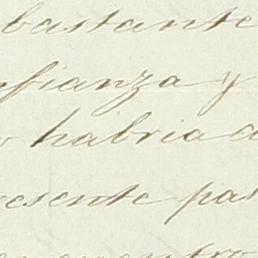 bastante
nfianza y
habria a
esente pas